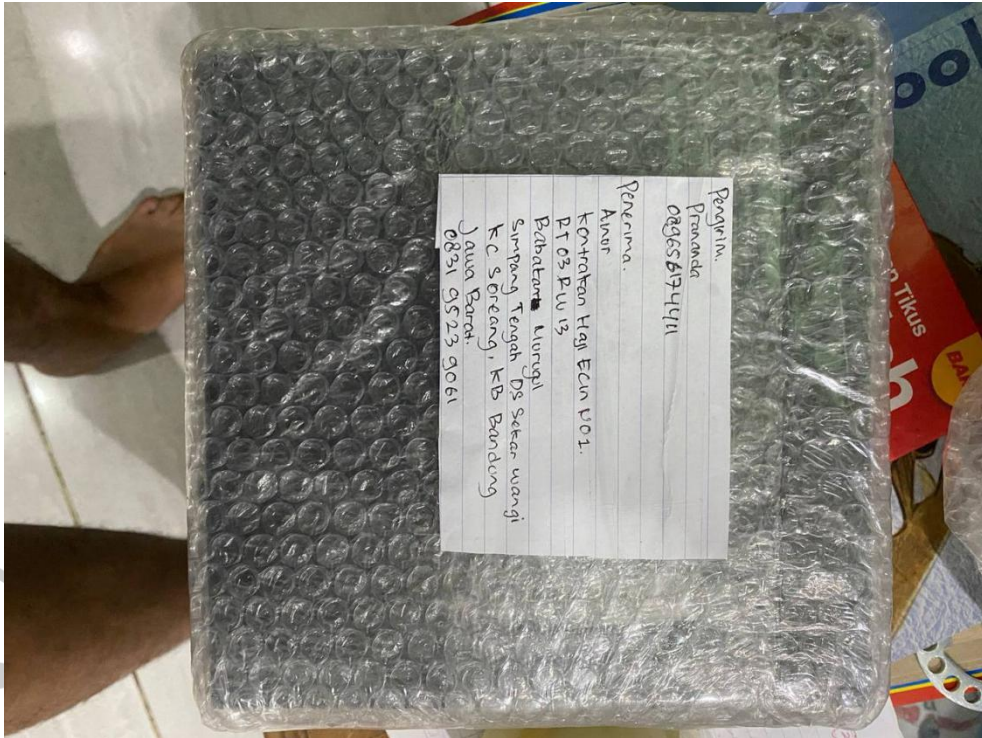 Pengirim.
Prananda
089656174411
Penerima.
Ainor
Kontrakan Haji Ecin NO1.
RT 03 RW 13
Babatan Murugul
Simpang Tengah DS Sekar wangi
KC Soreang, KB Bandung
Jawa Barat.
0831 9523 9061
ool
n Tikus
h
BA